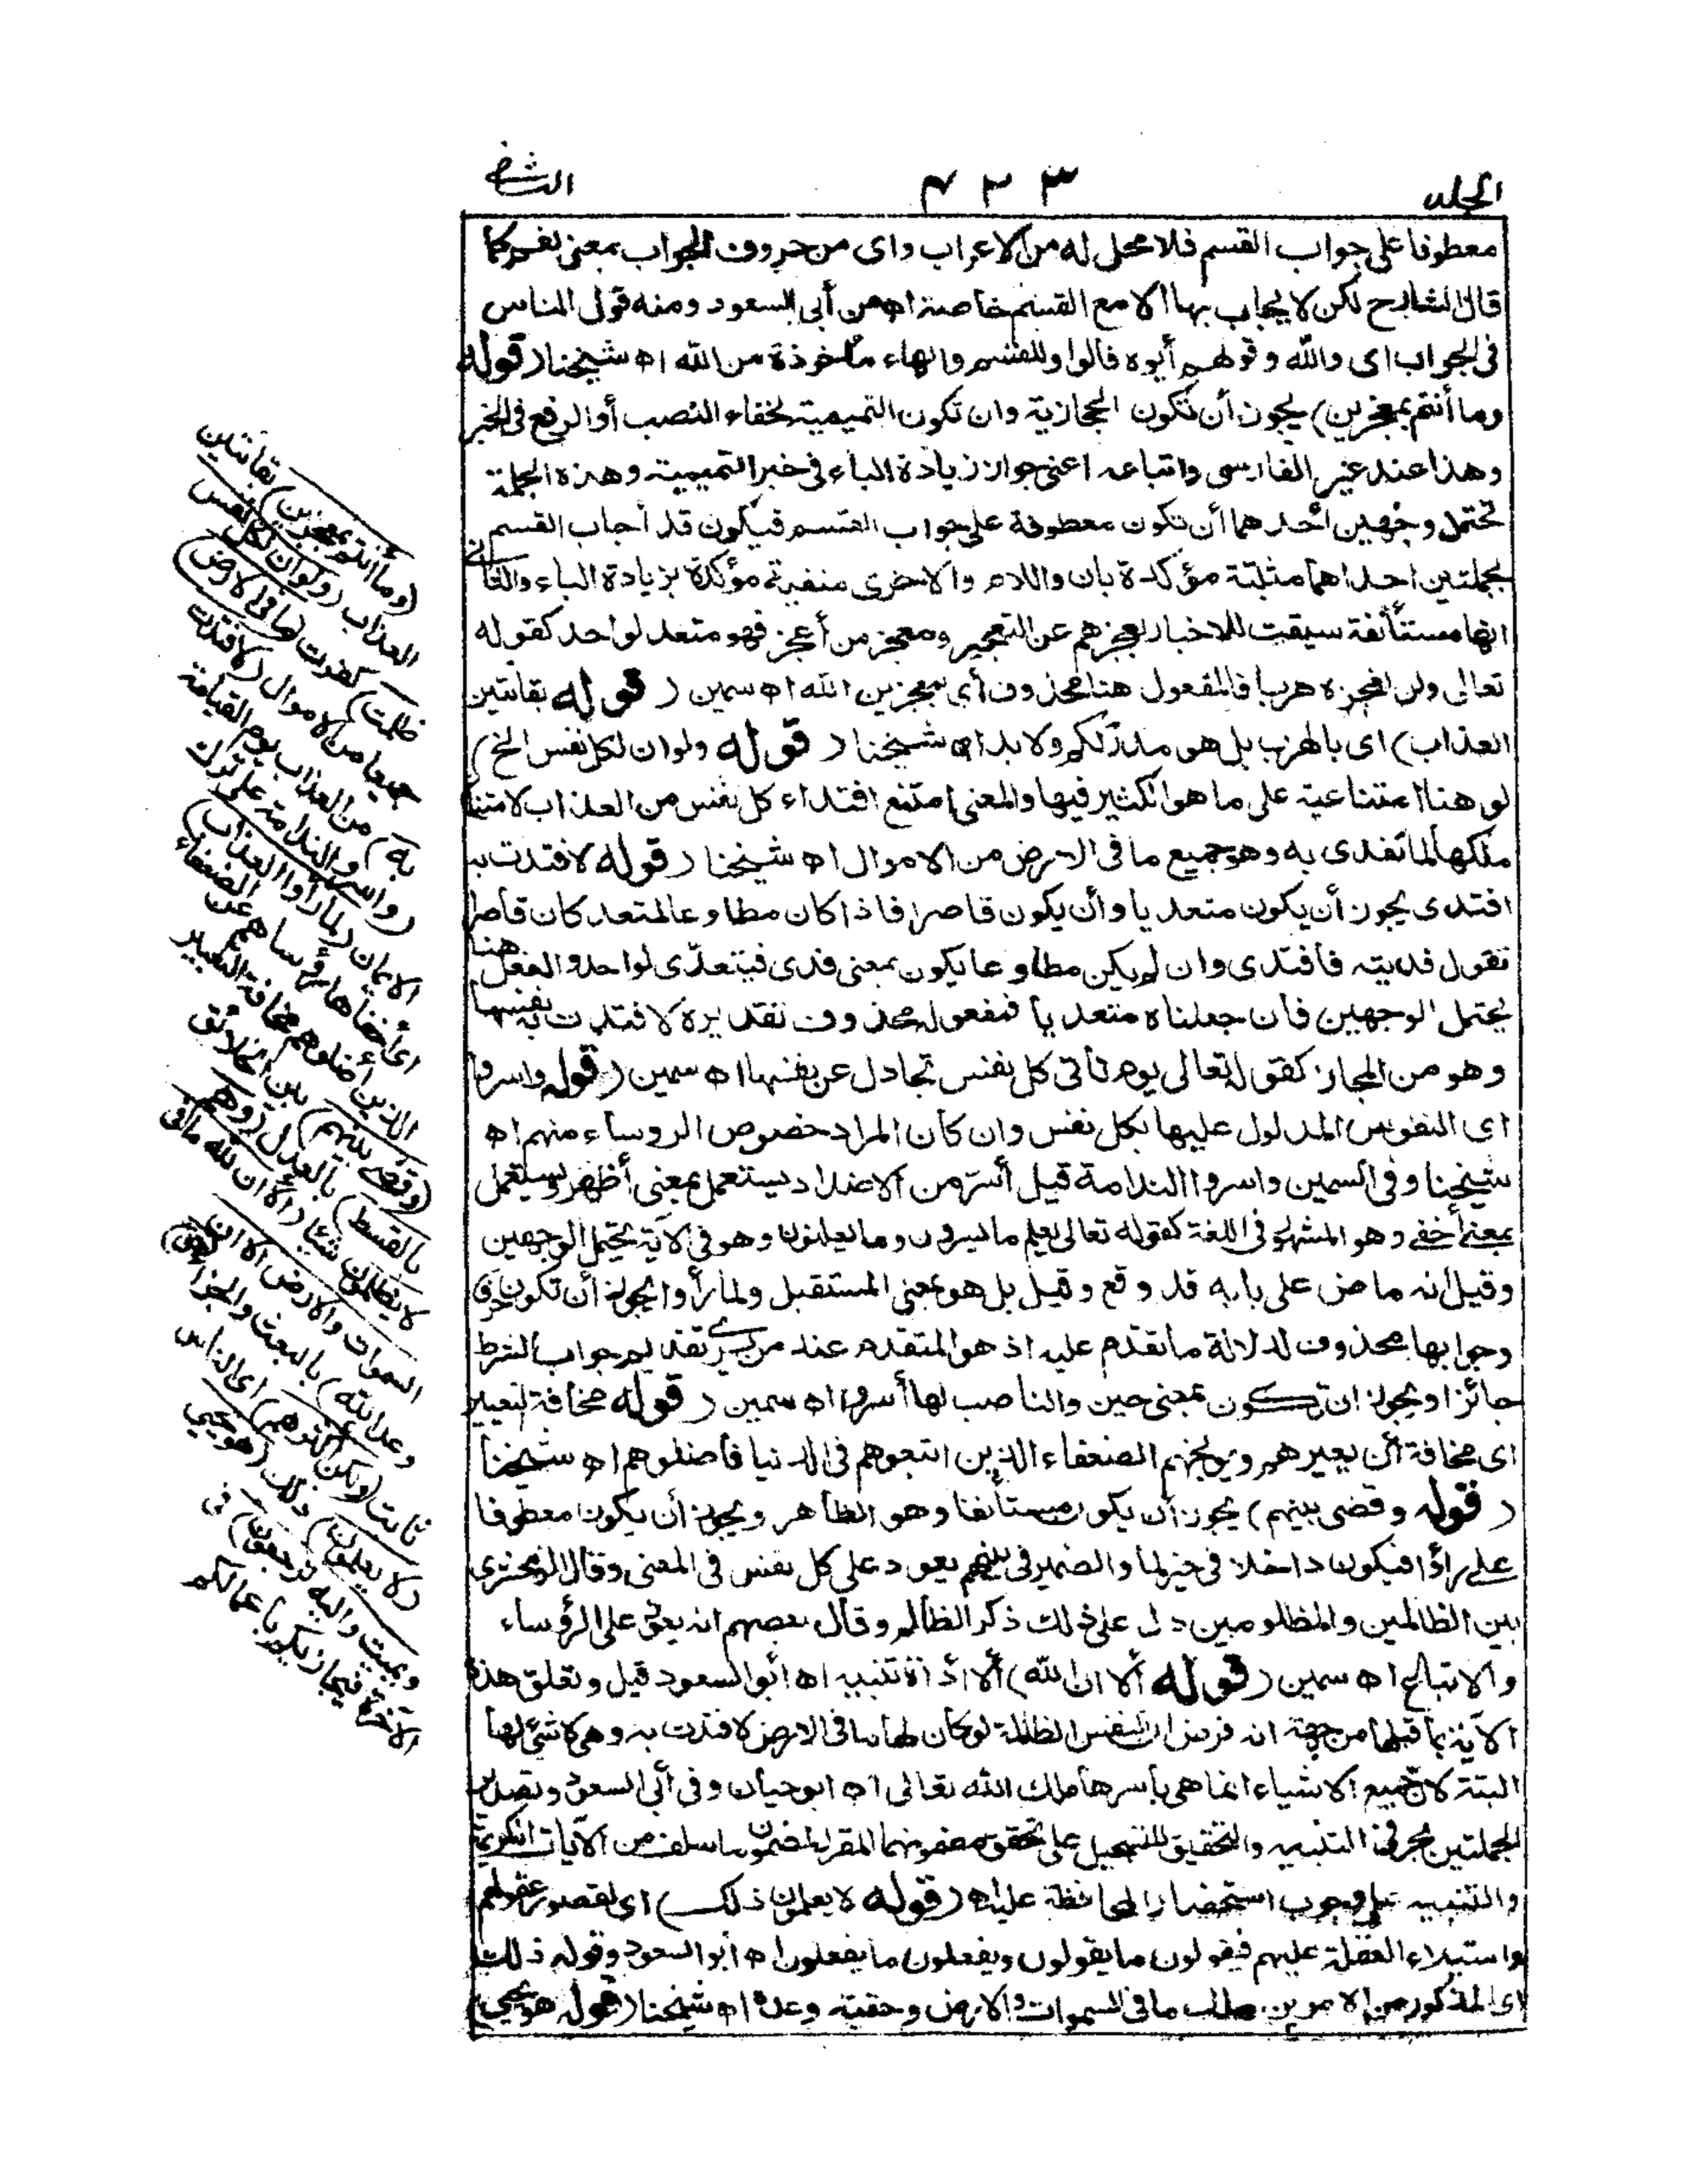 المجلد
٤٣٣
الثاني
معطوفا على جواب القسم فلا محل له من الاعراب واى من حروف الجواب بمعنى نعم كما
قال الشارح لكن لا يجاب بها الا مع القسم خاصة اه من أبى السعود ومنه قول الناس
فى الجواب اى والله وقولهم أيوه قالوا وللقسم والهاء مأخوذة من الله اه شيخنا (قوله
وما أنتم بمعجزين) يجوز أن تكون الحجازية وان تكون التميمية لخفاء النصب أو الرفع فى الخبر
وهذا عند غير الفارسى واتباعه اعنى جواز زيادة الباء فى خبر التميمية وهذه الجملة
تحتمل وجهين أحدهما أن تكون معطوفة على جواب القسم فيكون قد أجاب القسم
بجملتين احداهما مثبتة مؤكدة بان واللام والاخرى منفية مؤكدة بزيادة الباء والثانى
انها مستأنفة سيقت للاخبار لعجزهم عن التعجيز ومعجز من أعجز فهو متعد لواحد كقوله
تعالى ولن نعجزه هربا فالمفعول هنا محذوف أى بمعجزين الله اه سمين (قوله بفائتين
العذاب) اى بالهرب بل هو مدرككم ولا بد اه شيخنا (قوله ولو ان لكل نفس الخ)
لو هنا امتناعية على ما هو الكثير فيها والمعنى امتنع افتداء كل نفس من العذاب لامتناع
ملكها لما تفدى به وهو جميع ما فى الارض من الاموال اه شيخنا (قوله لافتدت به
افتدى يجوز أن يكون متعديا وأن يكون قاصرا فاذا كان مطاوعا لمتعد كان قاصرا
تقول فديته فافتدى وان لم يكن مطاوعا يكون بمعنى فدى فيتعدّى لواحد والفعل هنا
يحتمل الوجهين فان جعلناه متعديا فمفعوله محذوف تقديره لافتدت به نفسها
وهو من المجاز كقوله تعالى يوم تأتى كل نفس تجادل عن نفسها اه سمين (قوله واسروا
اى النفوس المدلول عليها بكل نفس وان كان المراد خصوص الروساء منهم اه
شيخنا وفى السمين واسروا الندامة قيل أسرّ من الاضداد يستعمل بمعنى أظهر ويستعمل
بمعنى أخفى وهو المشهور فى اللغة كقوله تعالى يعلم ما يسرون وما يعلنون وهو فى الآية يحتمل الوجهين
وقيل انه ماض على بابه قد وقع وقيل بل هو بمعنى المستقبل ولما رأوا يجوز أن تكون حرفا
وجوابها محذوف لدلالة ما تقدم عليه اذ هو المتقدم عند من يرى تقديم جواب الشرط
جائزا ويجوز ان تكون بمعنى حين والناصب لها أسروا اه سمين (قوله مخافة التعيير
اى مخافة أن يعيرهم ويوبخهم الضعفاء الذين اتبعوهم فى الدنيا فأضلوهم اه شيخنا
(قوله وقضى بينهم) يجوز أن يكون مستأنفا وهو الظاهر ويجوز أن يكون معطوفا
على رأوا فيكون داخلا فى حيز لما والضمير فى بينهم يعود على كل نفس فى المعنى وقال الزمخشرى
بين الظالمين والمظلومين دل على ذلك ذكر الظلم وقال بعضهم انه يعود على الرؤساء
والاتباع اه سمين (قوله ألا ان لله) ألا أداة تنبيه اه أبو السعود قيل وتعلق هذه
الآية بما قبلها من جهة انه فرض ان النفس الظالمة لو كان لها ما فى الارض لافتدت به وهى لا شئ لها
البتة لان جميع الاشياء انما هى بأسرها ملك الله تعالى اه ابو حيان وفى أبى السعود وتصدير
الجملتين بحرفى التنبيه والتحقيق للتسجيل على تحقق مضمونهما المقرر لمضمون ما سلف من الآيات الكريمة
والتنبيه على وجوب استحضاره والمحافظة عليه اه (قوله لا يعلمون ذلك) اى لقصور عقولهم
واستيلاء الغفلة عليهم فيقولون ما يقولون ويفعلون ما يفعلون اه أبو السعود وقوله ذلك
اى المذكور من الامرين ملك ما فى السموات والارض وحقية وعده اه شيخنا (قوله هو يحيى)
(وما أنتم بمعجزين) بفائتين
العذاب (ولو ان لكل نفس
ظلمت) كفرت (ما فى الارض)
جميعا من الاموال (لافتدت
به) من العذاب يوم القيامة
(واسروا الندامة) على ترك
الايمان (لما رأوا العذاب)
اى أخفاها رؤساهم عن الضعفاء
الذين أضلوهم مخافة التعيير
(وقضى بينهم) بين الخلائق
بالقسط) بالعدل (وهم
لا يظلمون) شيئا (ألا ان لله ما فى
السموات والارض الا ان
وعد الله) بالبعث والجزاء (حق)
ثابت (ولكن أكثرهم) اى الناس
(لا يعلمون) ذلك (هو يحيى
ويميت واليه ترجعون) فى
الآخرة فيجازيكم باعمالكم